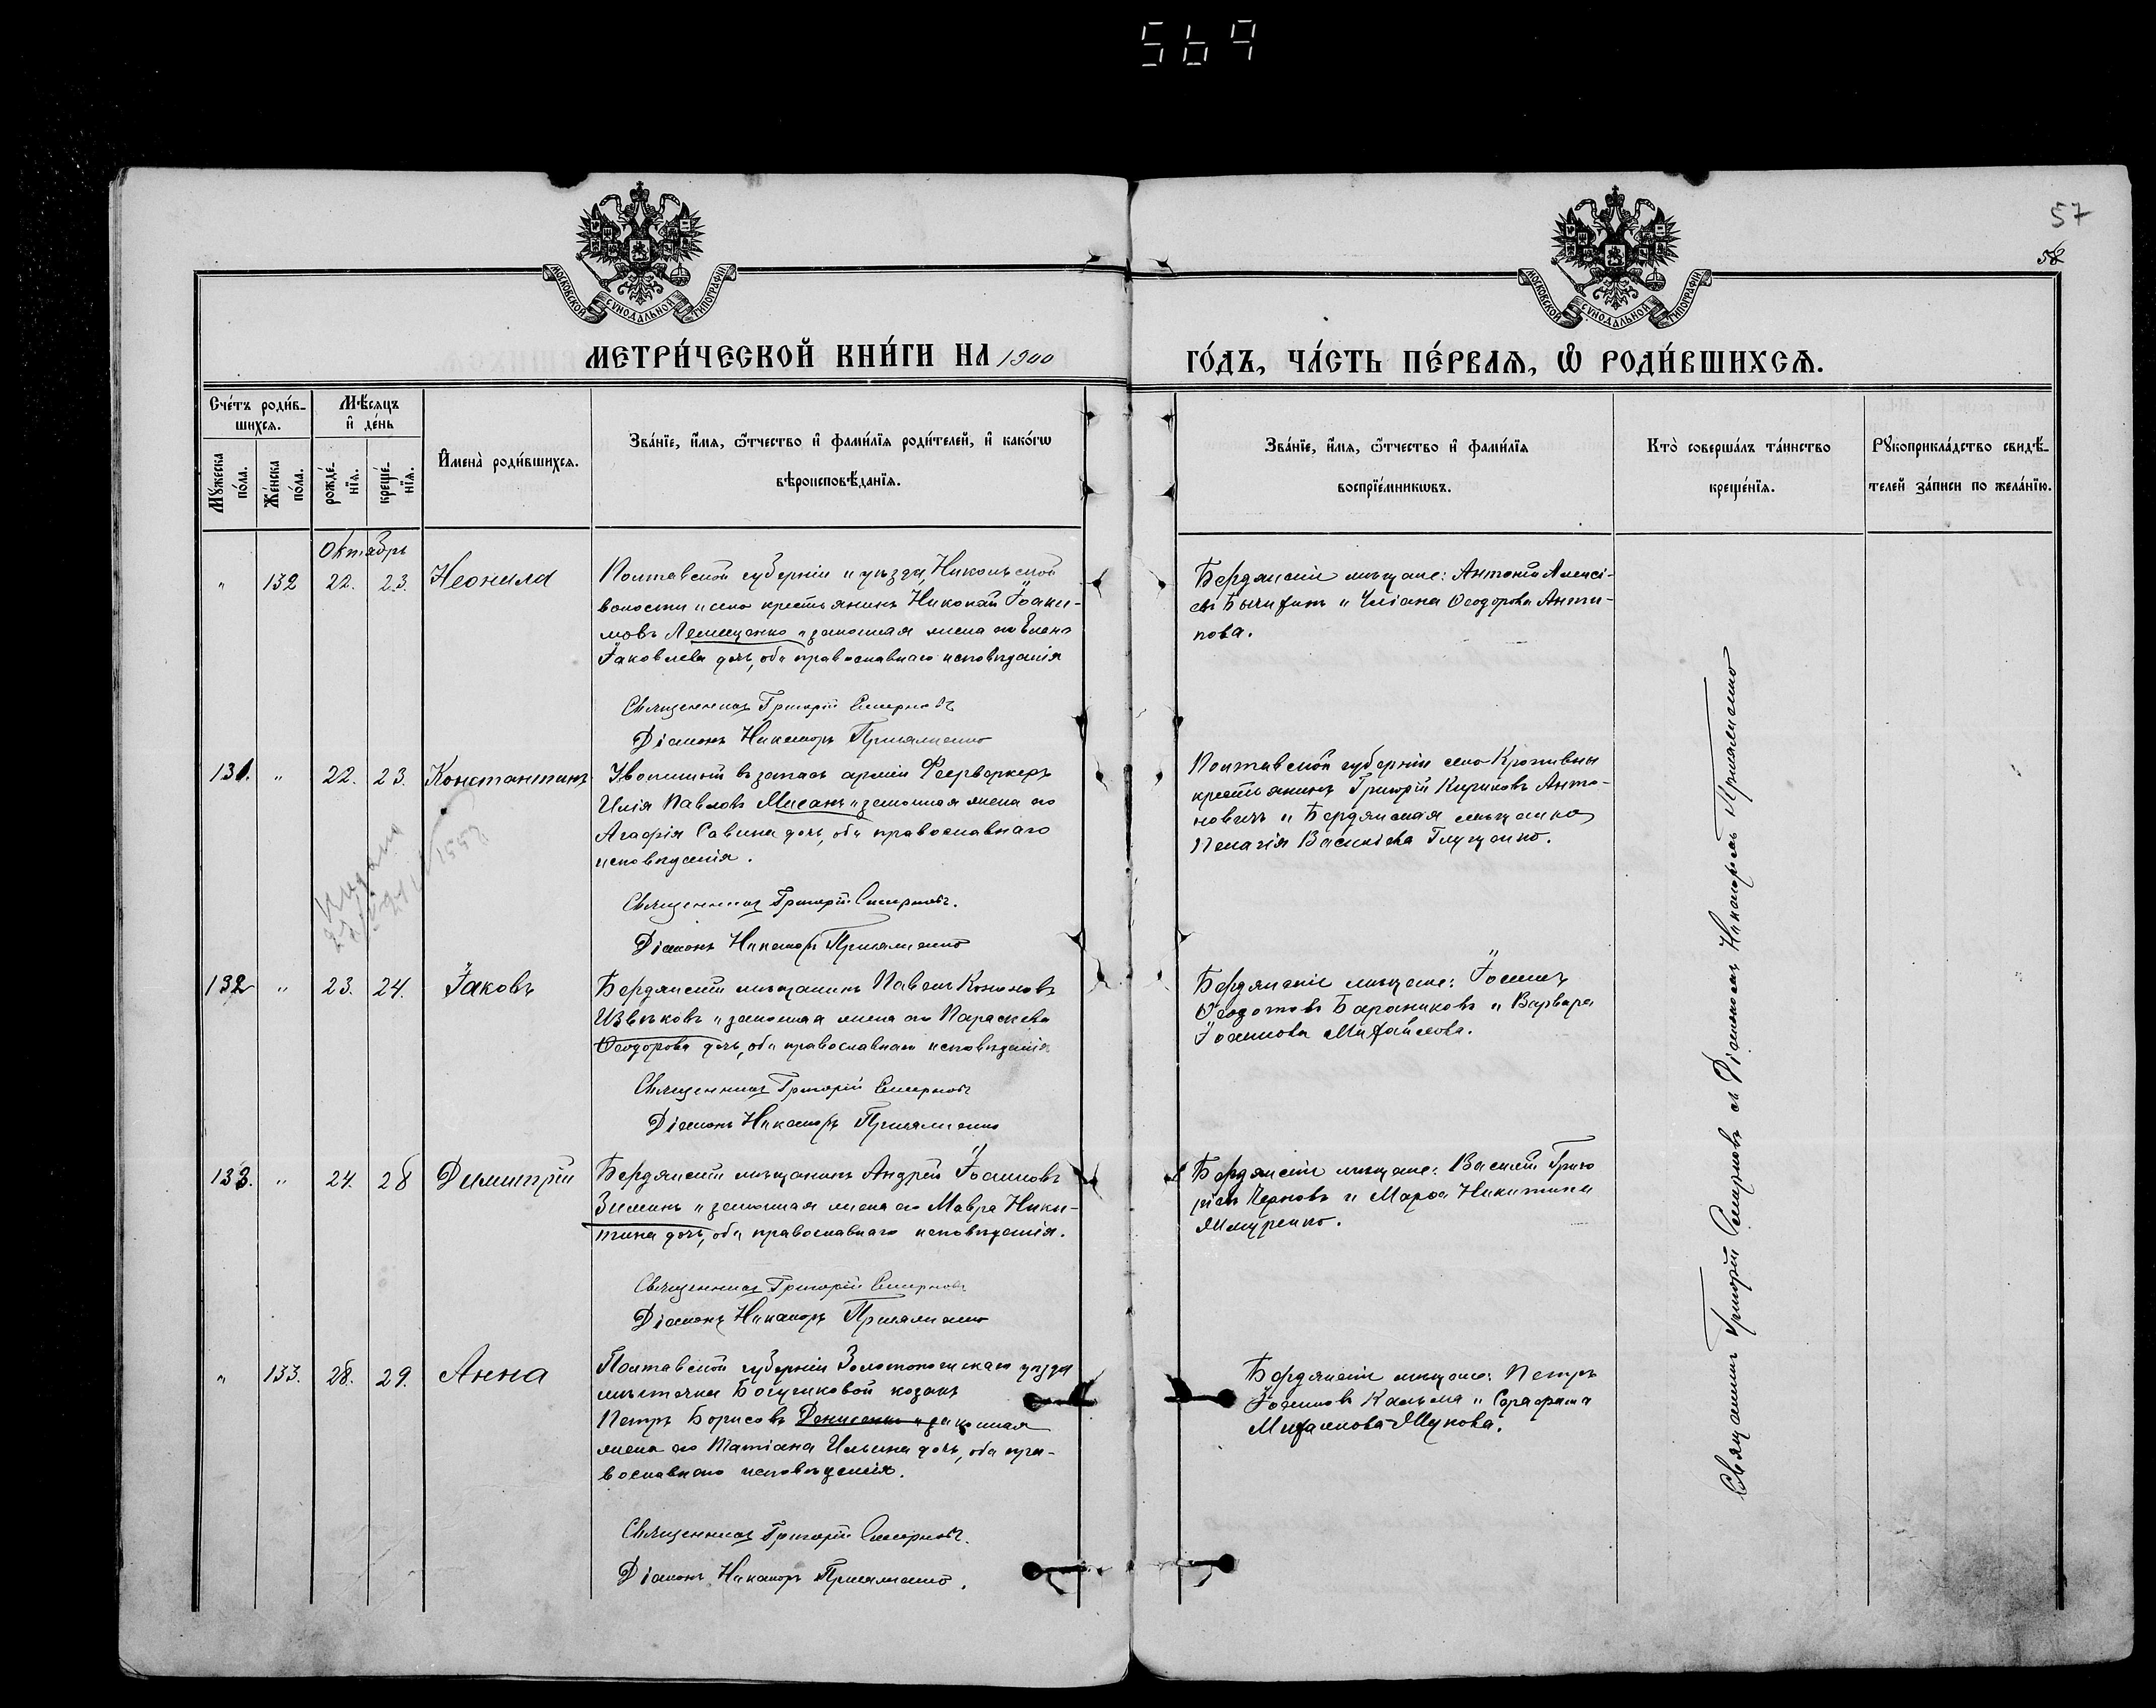 569
57
58
МОСКОВСКОЙ СѴНОДАЛЬНОЙ ТИПОГРАФІИ
МОСКОВСКОЙ СѴНОДАЛЬНОЙ ТИПОГРАФІИ
МЕТРИ́ЧЕСКОЙ КНИ́ГИ НА 1900
ГО́ДЪ, ЧА́СТЬ ПЕ́РВАЯ, Ѽ РОДИ́ВШИХСѦ.
Сче́тъ роди́в-
шихсѧ.
Мꙋ́жеска по́ла.
Же́нска по́ла.
Мѣ́сѧцъ
и҆ де́нь
рожде́-
нїѧ.
креще́-
нїѧ.
И҆мена̀ роди́вшихсѧ.
Зва́нїе, и҆́мѧ, ѻ҆́тчество и҆ фами́лїѧ роди́телей, и҆ како́гѡ
вѣроисповѣ́данїѧ.
Зва́нїе, и҆́мѧ, ѻ҆́тчество и҆ фами́лїѧ
воспрїе́мникѡвъ.
Кто̀ соверша́лъ та́инство
креще́нїѧ.
Рꙋкоприкла́дство свидѣ́-
телей за́писи по жела́нїю.
Октябрь
" 132 22. 23. Неонила
Полтавской губерніи и уѣзда, Никольской
волости и села крестьянинъ Николай Іоаки-
мовъ Лемещенко и законная жена его Елена
Іаковлева дочь, оба православнаго исповѣданія
Священникъ Григорій Смирновъ
Діаконъ Никаноръ
Бердянскіе мѣщане: Антоній Алексі-
евъ и Уліана Ѳеодорова Анти-
пова.
131. " 22. 23. Константинъ
Уволенный въ запасъ арміи Фейерверкеръ
Илія Павловъ Мисанъ и законная жена его
Агаѳія Савина дочь, оба православнаго
исповѣданія.
Священникъ Григорій Смирновъ.
Діаконъ Никаноръ
Полтавской губерніи села Кропивны
крестьянинъ Григорій Кириковъ Анто-
новичъ и Бердянская мѣщанка
Пелагія Василіева Глущенко.
132 " 23. 24. Іаковъ
Бердянскій мѣщанинъ Павелъ Кононовъ
Извѣковъ и законная жена его Параскева
Ѳеодорова дочь, оба православнаго исповѣданія
Священникъ Григорій Смирновъ
Діаконъ Никаноръ
Бердянскіе мѣщане: Іоаннъ
Ѳеодотовъ Бараниковъ и Варвара
Іоаннова Михайлова.
133. " 24. 28 Димитрій
Бердянскій мѣщанинъ Андрей Іоанновъ
Зиминъ и законная жена его Мавра Ники-
тина дочь, оба православнаго исповѣданія.
Священникъ Григорій Смирновъ
Діаконъ Никаноръ
Бердянскіе мѣщане: Василій Григо
ріевъ Черновъ и Марѳа Никитина
" 133. 28. 29. Анна
Полтавской губерніи Золотоношскаго уѣзда
мѣстечка козакъ
Петръ Борисовъ Денисенко и законная
жена его Татіана Ильина дочь, оба пра-
вославнаго исповѣданія.
Священникъ Григорій Смирновъ.
Діаконъ Никаноръ
Бердянскіе мѣщане: Петръ
Іоанновъ Кальма и Серафима
Михаилова Жукова.
Священникъ Григорій Смирновъ съ Діакономъ Никаноромъ